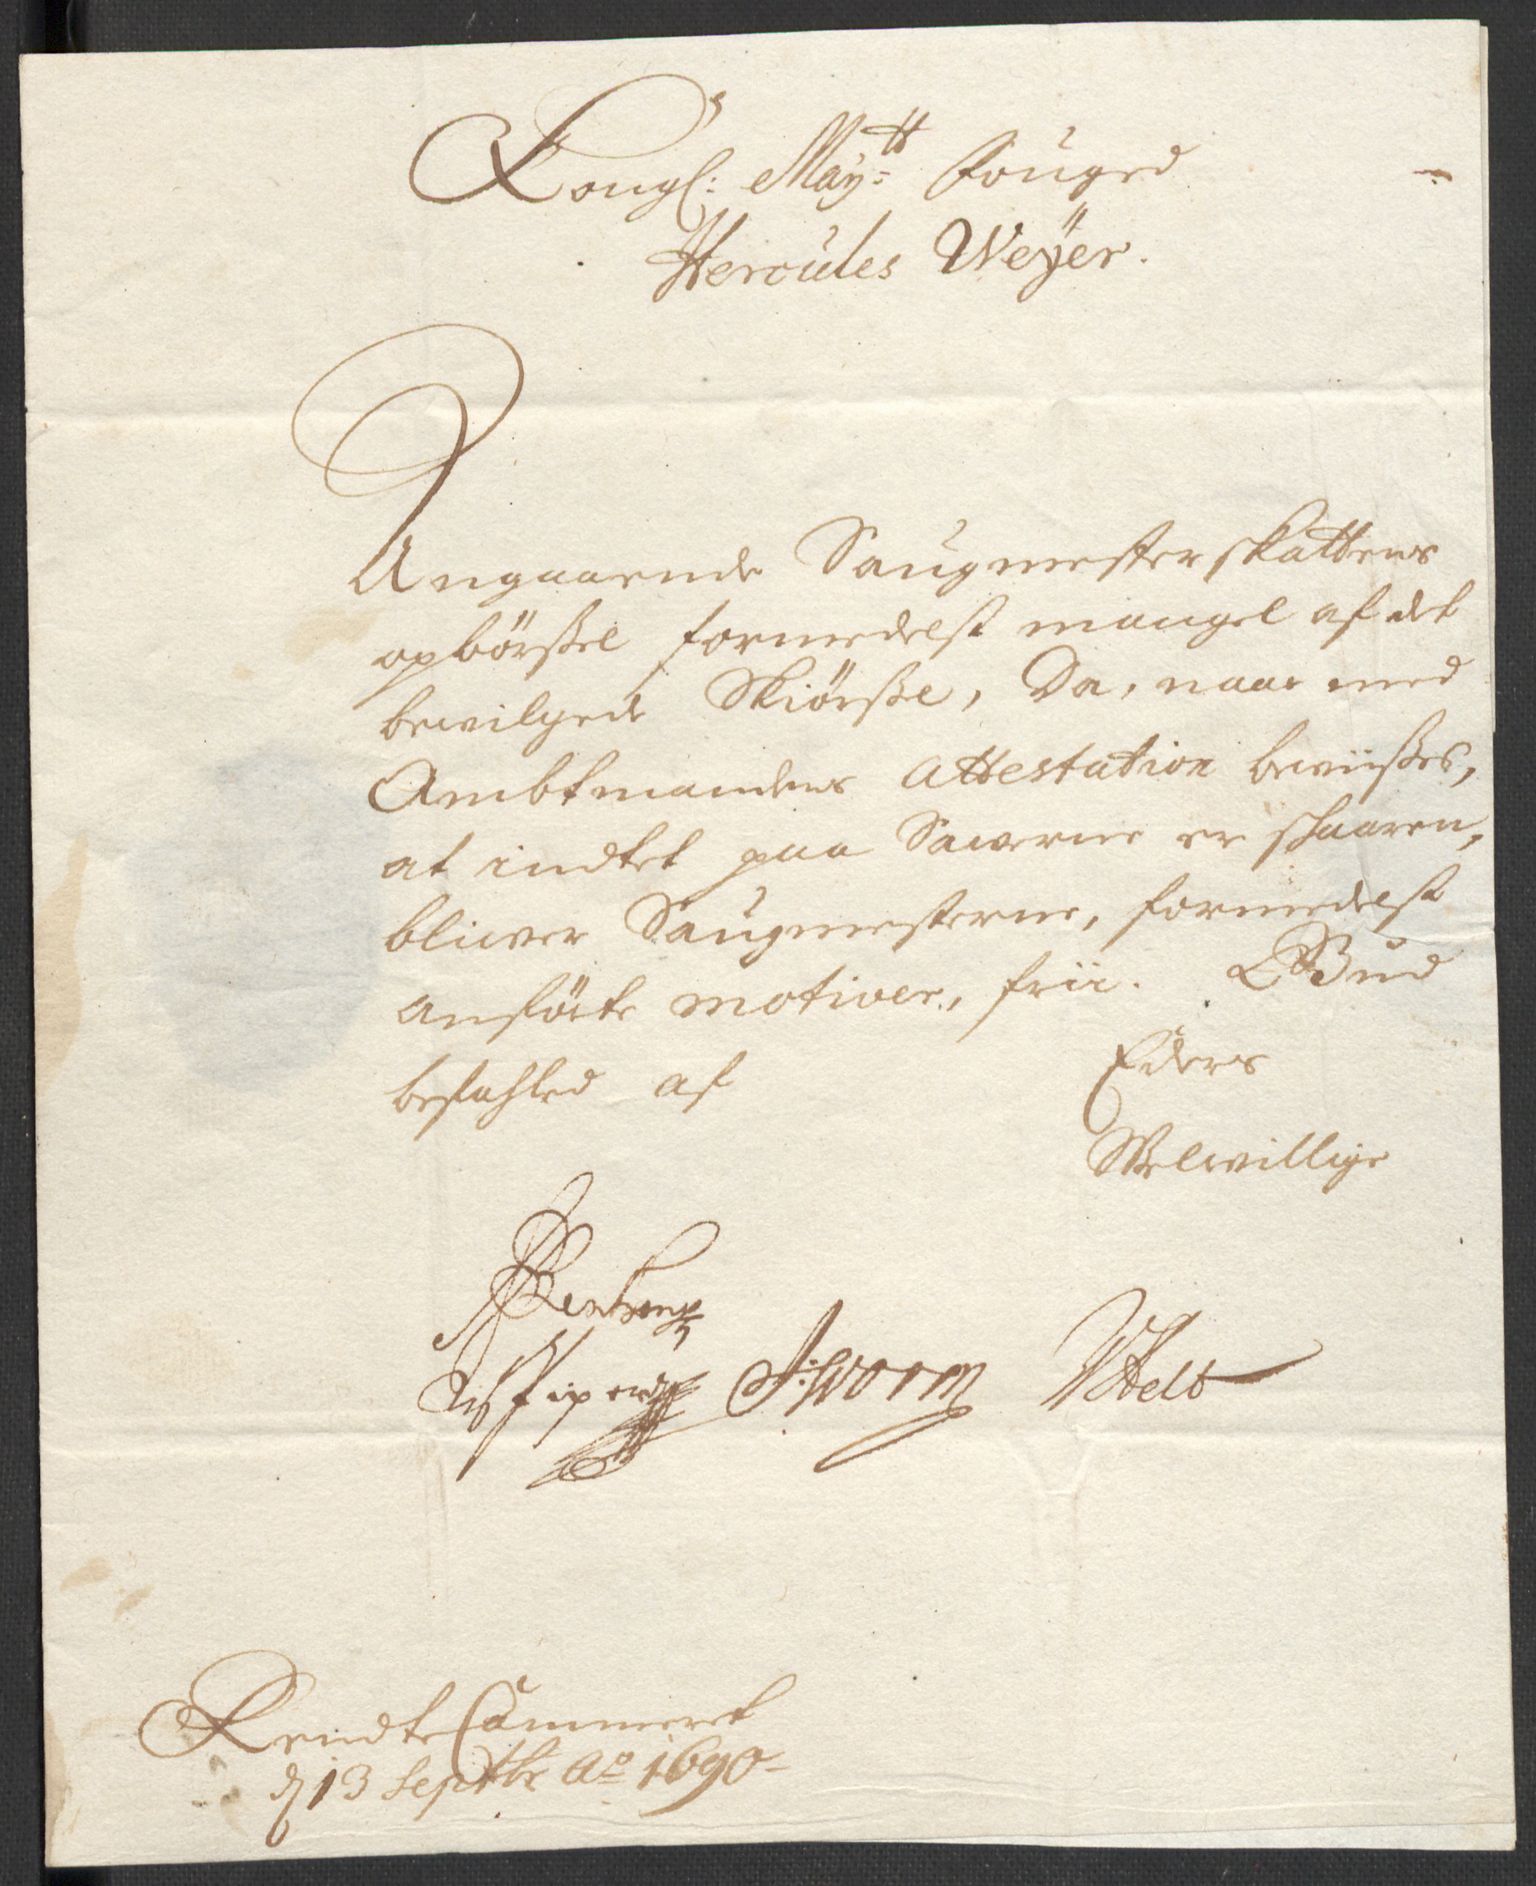 Kongl: May:tt Fouged
Hercules Weÿer.
Angaaende Saugmesterskattens
opbörßel formedelst mangel af det
bewilgede Skiörßle, Da, naar med
Ambtmandens Attestation bewiißes,
at indtet paa Sawerne er skaaren,
bliwer Saugmesterne, formedelst
anförte motiver, frii. Gud
befahled af
Eders
Welwillige
J: Worm
Rendte Cammeret
d 13 Septbr Ao 1690